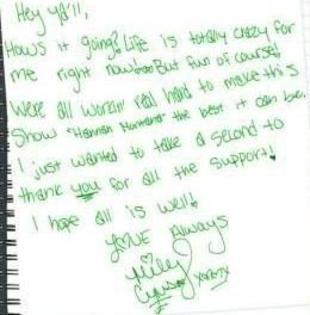 Hey ya'll,
How's it going? Life is totally crazy for
me right now! But fun of course!
We're all workin' real hard to make this
Show "Hannah Montana" the best it can be.
I just wanted to take a second to
thank you for all the support!
I hope all is well!
LOVE Always
Miley
Cyrus xoxox